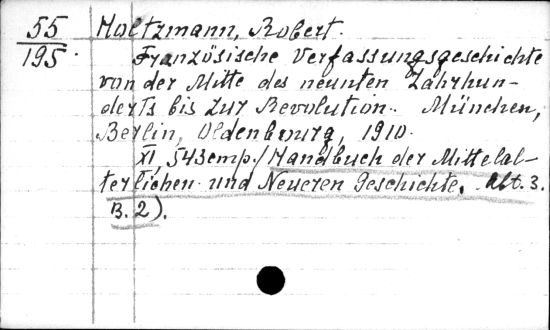 55
195.
Holtzmann, Robert.
Französische Verfassungsgeschichte
von der Mitte des neunten Jahrhun-
derts bis zur Revolution. München,
Berlin, Oldenbourg, 1910.
XI, 543 стр. (Handbuch der Mittelal-
terlichen und Neueren Geschichte. Abt. 3.
B. 2).